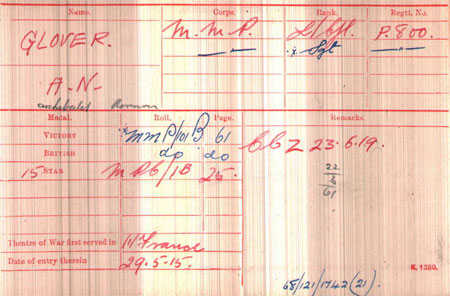 Name. Corps. Rank. Regtl. No.
GLOVER. M.M.P. L/Cpl. P.800.
* Sgt —„—
A.N.
Archibald Norman
Medal. Roll. Page. Remarks.
VICTORY *MMP/101B 61
BRITISH do do
15 STAR MPC/1B 25. CC Z 23.6.19.
22
3
61
Theatre of War first served in (1) France
Date of entry therein 29.5.15.
K. 1380.
68/121/1742 (21)